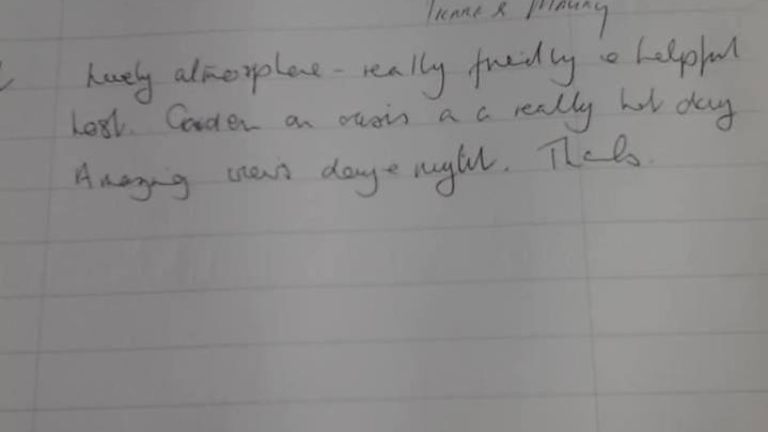 Lovely atmosphere - really friendly & helpful
host. Garden an oasis on a really hot day
Amazing views day & night. Thanks.